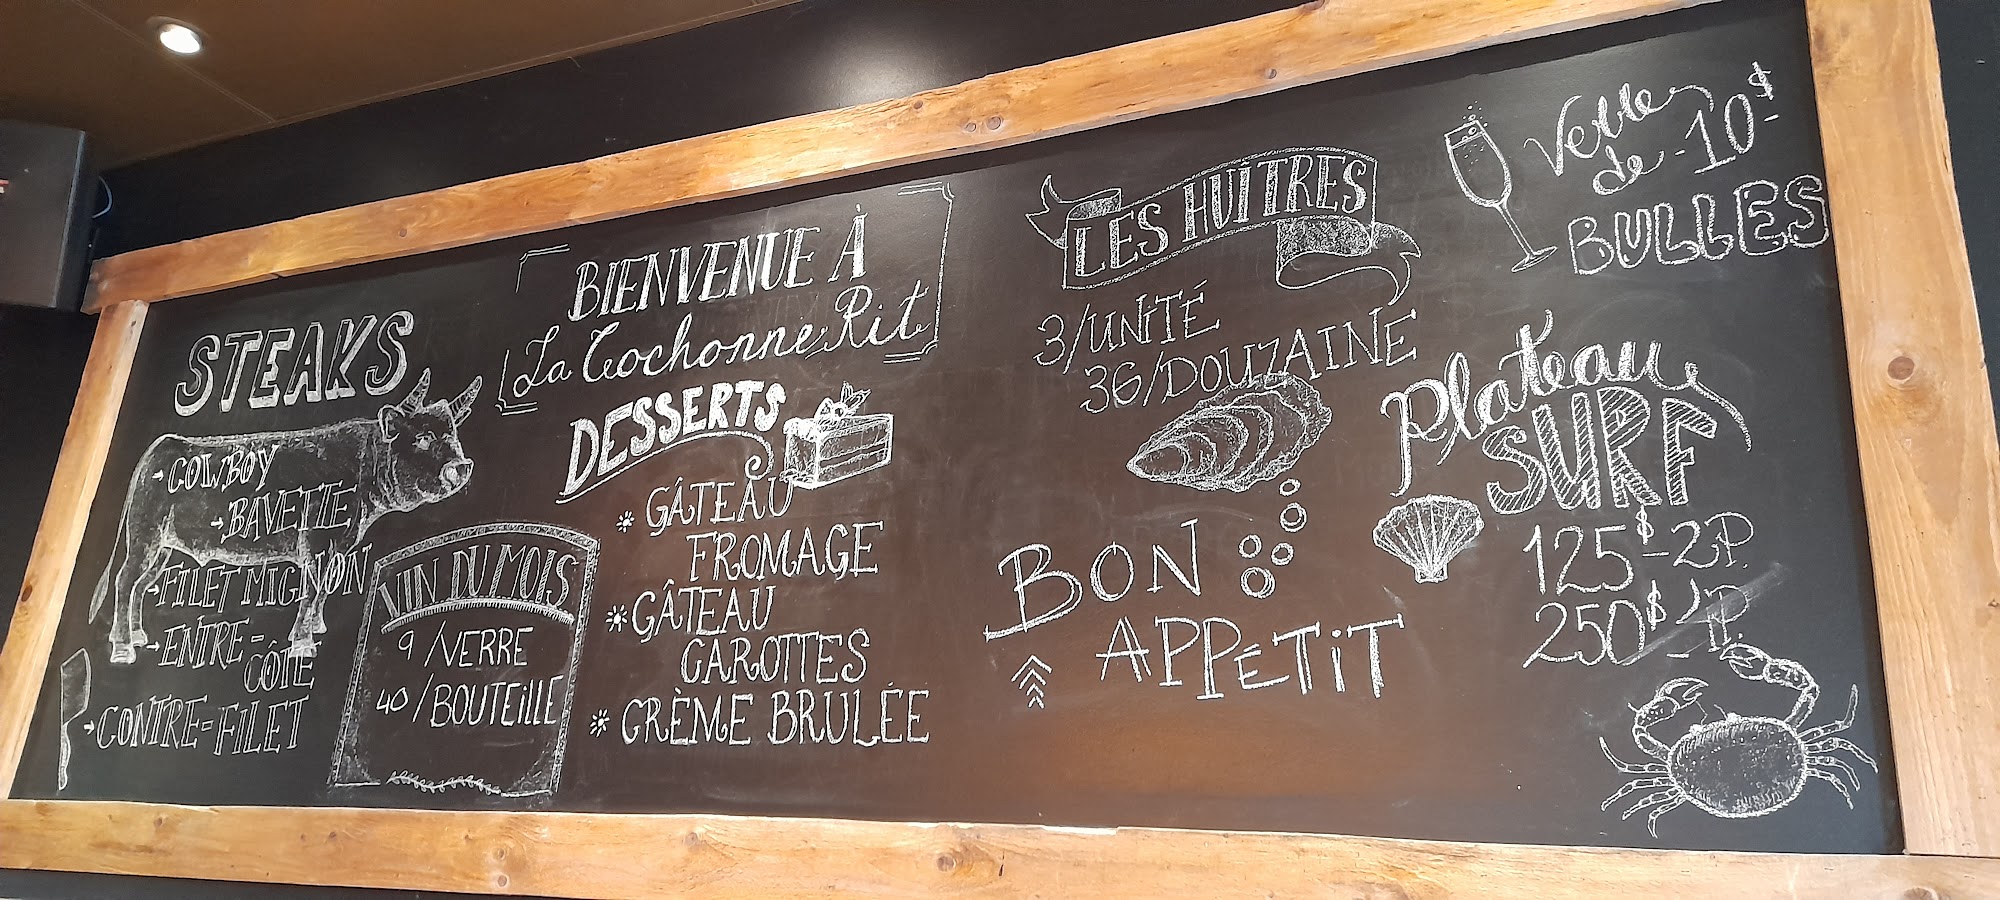 STEAKS
→COWBOY
→BAVETTE
→FILET MIGNON
→ENTRE=
CÔTE
→CONTRE=FILET
VIN DU MOIS
9 /VERRE
40 /BOUTEILLE
BIENVENUE À
La Cochonne Rit
DESSERTS
* GÂTEAU
FROMAGE
* GÂTEAU
CAROTTES
* CRÈME BRULÉE
LES HUÎTRES
3/UNITÉ
36/DOUZAINE
BON
APPÉTIT
Verre
de -10$-
BULLES
Plateau
SURF
125$-2P.